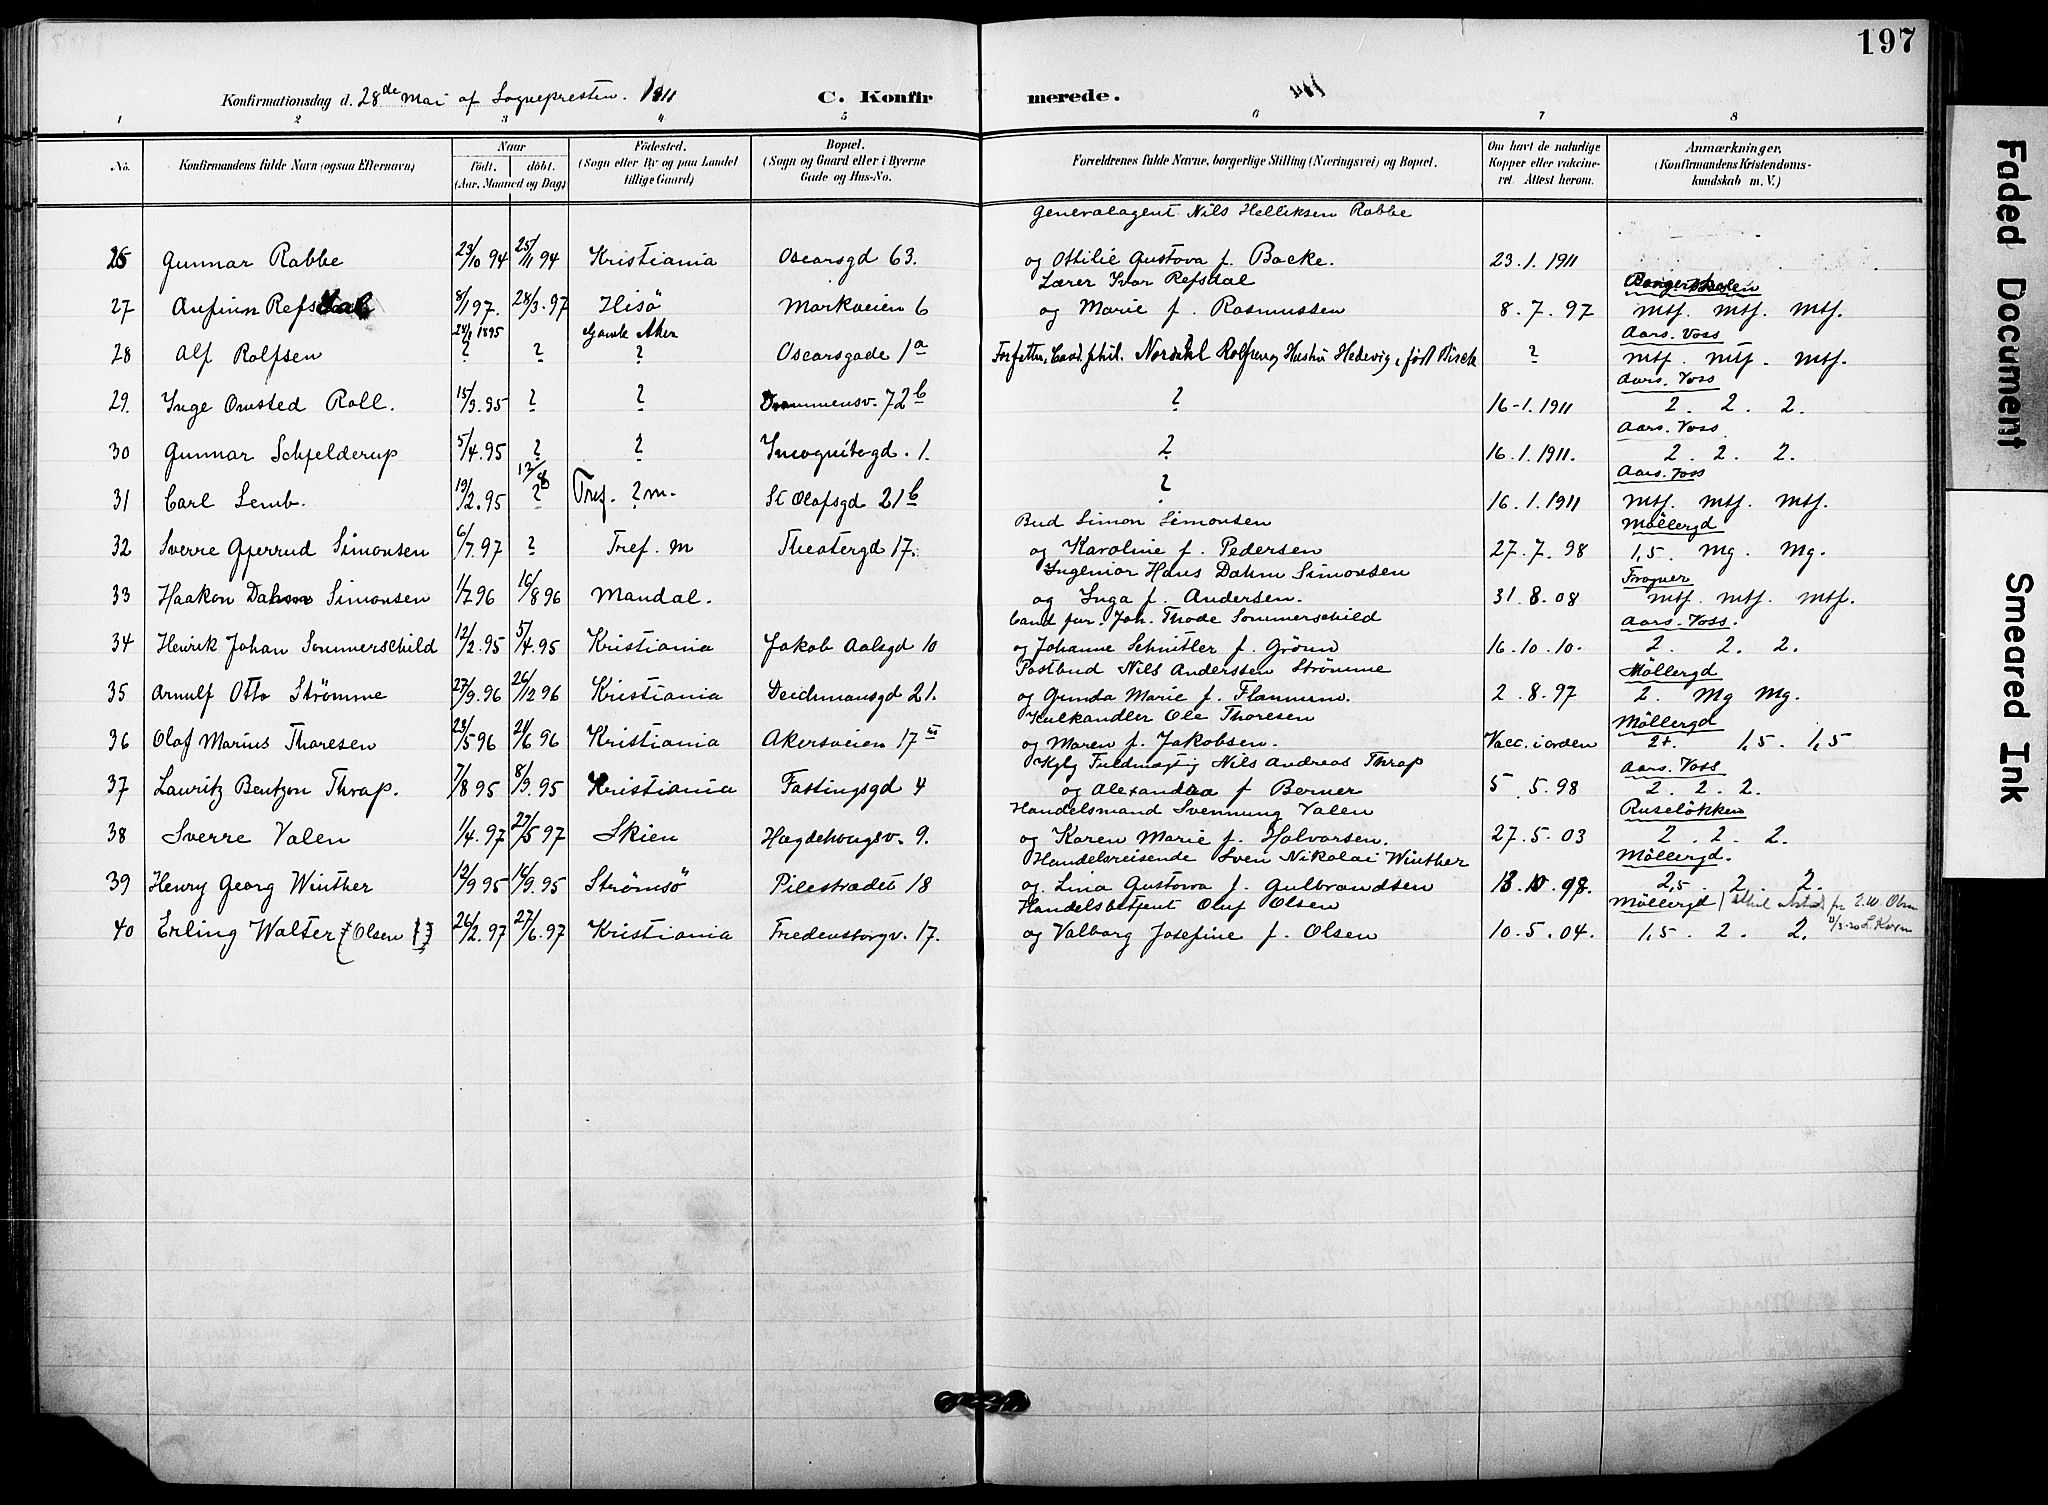 197
Konfirmationsdag d. 28de Mai af Sognepresten. 1911 C. Konfirmerede.
1 2 3 4 5 6 7 8
No. Konfirmandens fulde Navn (ogsaa Efternavn) Naar født. døbt. (Aar, Maaned og Dag) Fødested. (Sogn eller By og paa Landet tillige Gaard) Bopæl. (Sogn og Gaard eller i Byerne Gade og Hus-No. Forældrenes fulde Navne, borgerlige Stilling (Næringsvei) og Bopæl. Om havt de naturlige Kopper eller vaccineret. Attest herom. Anmærkninger. (Konfirmandens Kristendomskundskab m. V.)
Generalagent Nils Helliksen Rabbe
26 Gunnar Rabbe 23/10 94 25/11 94 Kristiania Oscarsgd 63. og Othilie Gustava f. Backe. 23.1.1911
Lærer Ivar Refsdal
27 Anfinn Refsdal 8/1 97. 28/3.97 Hisö Markveien 6 og Marie f. Rasmussen 8.7.97 mtf. mtf. mtf.
1895 Gamle Aker Aars. Voss
28 Alf Rolfsen ? ? ? Oscarsgade 1a Forfatter, Cand. phil. Nordahl Rolfsen og Hustru Hedevig, født ? mtf. mtf. mtf.
Aars. Voss
29. Inge Onsted Roll. 15/3.95 ? ? Drammensv. 72b ? 16-1.1911 2. 2. 2.
Aars. Voss
30 Gunnar Schjelderup 5/4.95 ? ? Incognitogd. 1. ? 16.1.1911. 2. 2. 2.
12/8 Aars. Voss
31 Carl Lemb. 19/2.95 ? Tref. ? m. St Olafsgd 21b ? 16.1.1911 mtf. mtf. mtf.
Bud Simon Simonsen Möllergd
32 Sverre Gjerrud Simonsen 6/7.97 ? Tref. m Theatergd 17. og Karoline f. Pedersen 27.7.98 1,5. Mg. Mg.
Ingeniør Hans Dahm Simonsen Frogner
33 Haakon Dahm Simonsen 1/7 96 16/8 96 Mandal. og Inga f. Andersen. 31.8.08 mtf. mtf. mtf.
Cand jur. Joh. Thode Sommerschild Aars. Voss.
34 Henrik Johan Sommerschild 12/2.95 5/4.95 Kristiania Jakob Aalsgd 10 og Johanne Schnitler f. Grönn 16.10.10. 2. 2. 2.
Postbud Nils Anderssen Strömme Möllergd
35 Arnulf Otto Strømme 27/9.96 26/12 96 Kristiania Deichmansgd 21. og Gunda Marie f. Flannum. 2.8.97 2. Mg Mg.
Kulkandler Ole Thoresen Möllergd
36 Olaf Marius Thoresen 23/5 96 21/6 96 Kristiania Akersveien 17 og Maren f. Jakobsen. Vacc. i orden 2+. 1,5. 1,5
Fuldmægtig Nils Andreas Thrap Aars. Voss
37 Lauritz Bentzon Thrap. 7/8 95 8/9.95 Kristiania Fastingsgd 4 og Alexandra f Berner 5.5.98 2. 2. 2.
Handelsmand Svennung Valen Ruseløkken
38 Sverre Valen 1/4.97 27/5 97 Skien Hægdehougsv. 9. og Karen Marie f. Halvorsen. 27.5.03 2. 2. 2.
Handelsreisende Sven Nikolai Winther Möllergd.
39 Henry Georg Winther 12/9 95 14/9.95 Strömsö Pilestrædet 18 og. Lina Gustava f. Gulbrandsen 13.10.98. 2,5. 2. 2.
Handelsbetjent Oluf Olsen Möllergd
40 Erling Walter (Olsen) 26/2.97 27/6.97 Kristiania Fredensborgv. 17. og Valborg Josefine f. Olsen 10.5.04. 1,5. 2. 2.
Faded Document
Smeared Ink